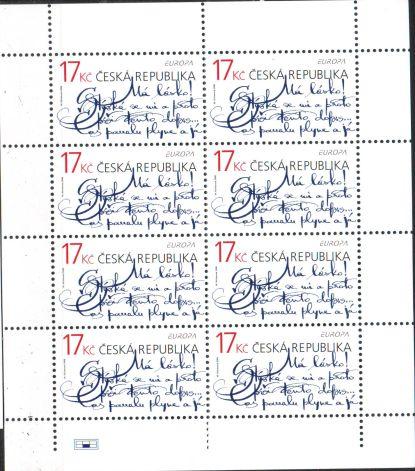 EUROPA
17 Kč ČESKÁ REPUBLIKA
Má lásko!
Stýská se mi a proto
tento dopis...
čas pomalu plyne a já
EUROPA
17 Kč ČESKÁ REPUBLIKA
Má lásko!
Stýská se mi a proto
tento dopis...
čas pomalu plyne a já
EUROPA
17 Kč ČESKÁ REPUBLIKA
Má lásko!
Stýská se mi a proto
tento dopis...
čas pomalu plyne a já
EUROPA
17 Kč ČESKÁ REPUBLIKA
Má lásko!
Stýská se mi a proto
tento dopis...
čas pomalu plyne a já
EUROPA
17 Kč ČESKÁ REPUBLIKA
Má lásko!
Stýská se mi a proto
tento dopis...
čas pomalu plyne a já
EUROPA
17 Kč ČESKÁ REPUBLIKA
Má lásko!
Stýská se mi a proto
tento dopis...
čas pomalu plyne a já
EUROPA
17 Kč ČESKÁ REPUBLIKA
Má lásko!
Stýská se mi a proto
tento dopis...
čas pomalu plyne a já
EUROPA
17 Kč ČESKÁ REPUBLIKA
Má lásko!
Stýská se mi a proto
tento dopis...
čas pomalu plyne a já